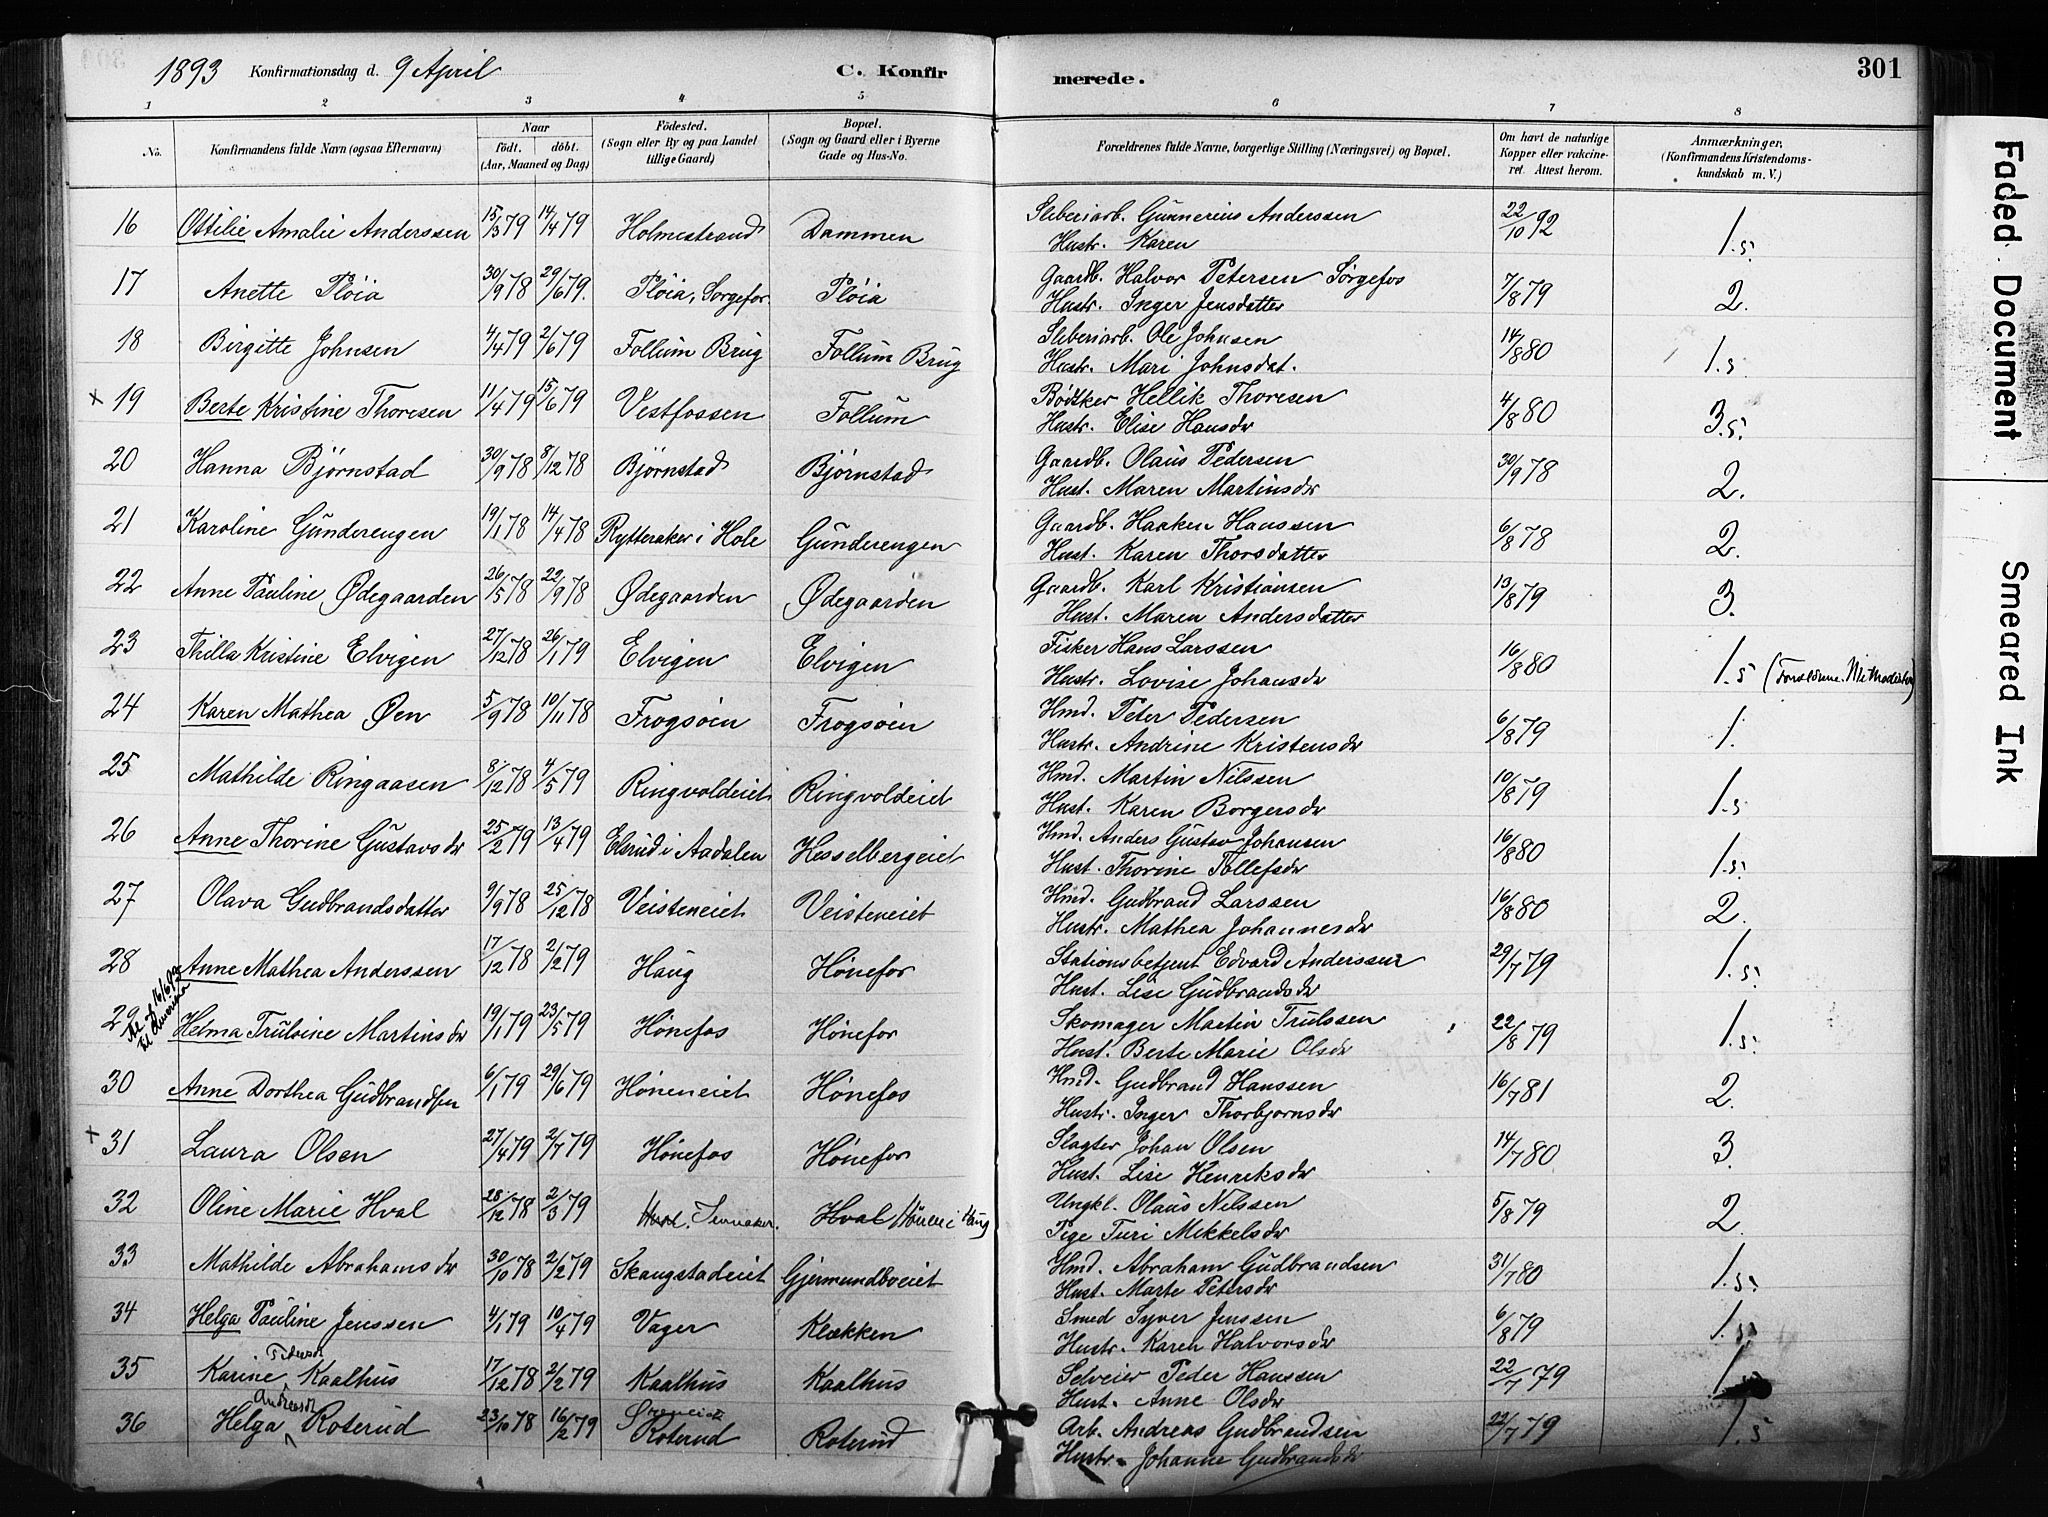 1893 Konfirmationsdag d. 9 April C. Konfirmerede. 301
1 2 3 4 5 6 7 8
No. Konfirmandens fulde Navn (ogsaa Efternavn) Naar født. døbt. (Aar, Maaned og Dag) Fødested. (Sogn eller By og paa Landet tillige Gaard) Bopæl. (Sogn og Gaard eller i Byerne Gade og Hus-No.) Forældrenes fulde Navne, borgerlige Stilling (Næringsvei) og Bopæl. Om havt de naturlige Kopper eller vakcineret. Attest herom. Anmærkninger. (Konfirmandens Kristendomskundskab m. V.)
16 Ottilie Amalie Anderssen 15/3 79 14/4 79 Holmestrand Dammen Sliberiarb. Gunnerius Anderssen 22/10 92 1.5.
Hustr. Karen
17 Anette Pløia 30/9 78 29/6 79. Pløia, Sørgefos Pløia Gaardb. Halvor Petersen Sørgefos 7/8 79 2.
Hustr. Inger Jensdatter
18 Birgitte Johnsen 4/4 79 2/6 79 Follum Brug Follum Brug Sliberiarb. Ole Johnsen 14/8 80 1.5
Hustr. Mari Johnsdat.
x 19 Berte Kristine Thoresen 11/4 79 15/6 79 Vestfossen Follum Bødtker Hellik Thoresen 4/8 80 3.5.
Hustr. Elise Hansdr
20 Hanna Bjørnstad 30/9 78 8/12 78 Bjørnstad Bjørnstad Gaardb. Olaus Pedersen 30/9 78 2.
Hust. Maren Martinsdr
21 Karoline Gunderengen 19/1 78 14/4 78 Rytteraker i Hole Gunderengen Gaardb. Haaken Hanssen 6/8 78 2.
Hust. Karen Thorsdatter
22 Anne Pauline Ødegaarden 26/5 78 22/9 78 Ødegaarden Ødegaarden Gaardb. Karl Kristiansen 13/8 79 3.
Hust. Maren Andersdatter
23 Thilla Kristine Elvigen 27/12 78 26/1 79 Elvigen Elvigen Fisker Hans Larssen 16/8 80 1.5
Hustr. Lovise Johansdr
24 Karen Mathea Øen 5/9 78 10/11 78 Frogsøien Frogsøien Hmd. Peter Pedersen 6/8 79 1.
Hustr. Andrine Kristensdr
25 Mathilde Ringaasen 8/12 78 4/5 79 Ringvoldeiet Ringvoldeiet Hmd. Martin Nilssen 10/8 79 1.5
Hust. Karen Borgersdr
26 Anne Thorine Gustavsdr 25/2 79 13/4 79 Elsrud i Aadalen Hesselbergeiet Hmd. Anders Gustav Johansen 16/8 80 1.5.
Hust. Thorine Tollefsdr
27 Olava Gudbrandsdatter 9/9 78 25/12 78 Veisteneiet Veisteneiet Hmd. Gudbrand Larssen 16/8 80 2.
Hustr. Mathea Johannesdr
28 Anne Mathea Anderssen 17/12 78 2/2 79 Haug Hønefos Stationsbetjent Edvard Anderssen 29/7 79 1.5.
Hust. Lise Gudbrandsdr
29 Helma Trulsine Martinsdr 19/1 79 23/5 79 Hønefos Hønefos Skomager Martin Trulssen 22/8 79 1.5.
Hust. Berte Marie Olsdr
30 Anne Dorthea Gudbrandsen 6/1 79 29/6 79 Høneneiet Hønefos Hmd. Gudbrand Hanssen 16/7 81 2.
Hustr. Inger Thorbjørnsdr
x 31 Laura Olsen 27/4 79 2/7 79 Hønefos Hønefos Slagter Johan Olsen 14/7 80 3.
Hust. Lise Henriksdr
32 Oline Marie Hval 28/12 78 2/3 79 Hval Hønen i Haug Ungkl. Olaus Nilssen 5/8 79 2.
Pige Turi Mikkelsdr
33 Mathilde Abrahamsdr 30/10 78 2/2 79 Skaugstadeiet Gjermundboeiet Hmd. Abraham Gudbrandsen 31/7 80 1.5.
Hust. Marte Petersdr
34 Helga Pauline Jenssen 4/1 79 10/4 79 Vager Klækken Smed Syver Jenssen 6/8 79 1.5.
Hustr. Karen Halvorsdr
35 Karine Pedersdr Kaalhus 17/12 78 2/2 79 Kaalhus Kaalhus Selveier Peder Hanssen 22/7 79 1.
Hust. Anne Olsdr
36 Helga Andreasdr Roterud 23/10 78 16/2 79 Roterud Roterud Arb. Andreas Gudbrandsen 22/7 79 1.5
Hustr. Johanne Gudbrandsdr
Faded Document
Smeared Ink